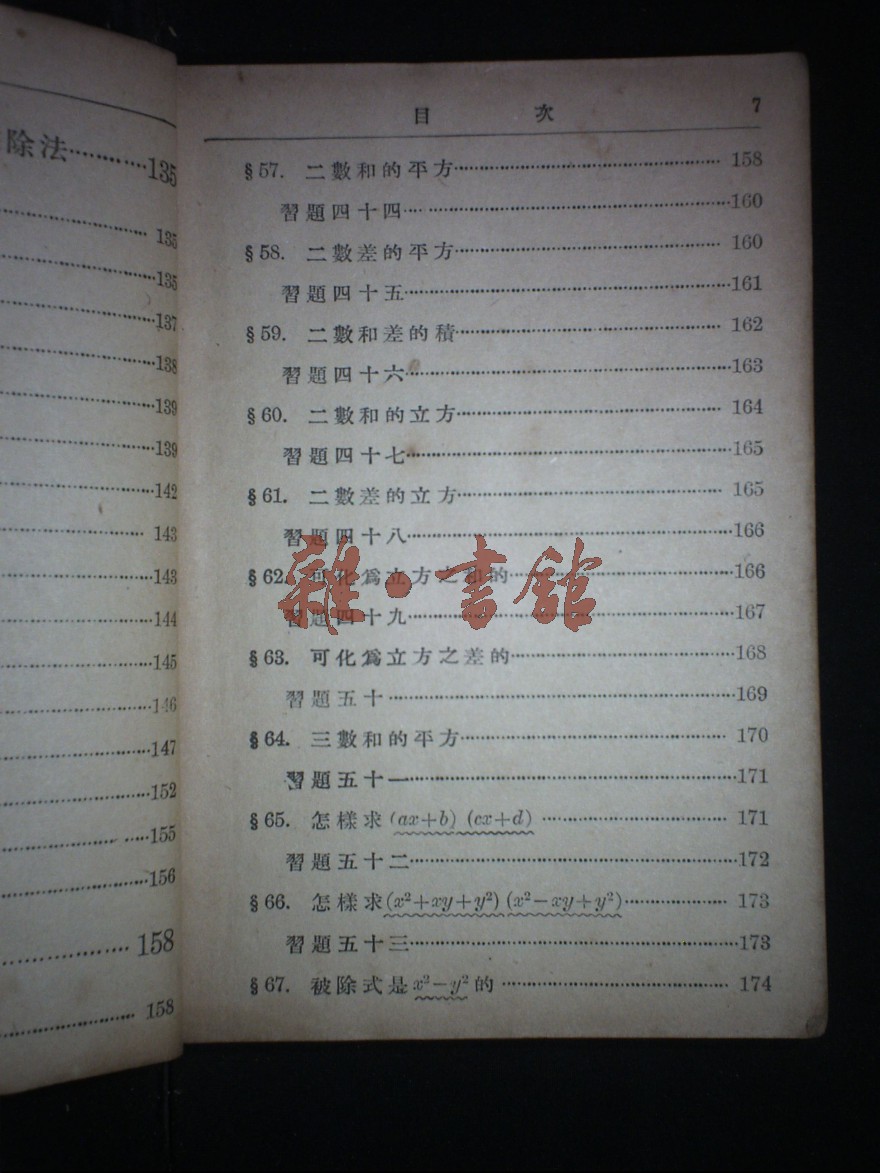 除法…………135
135
135
137
138
139
139
142
143
143
144
145
146
147
152
155
156
158
158
目 次 7
§57. 二數和的平方…………158
習題四十四…………160
§58. 二數差的平方…………160
習題四十五…………161
§59. 二數和差的積…………162
習題四十六…………163
§60. 二數和的立方…………164
習題四十七…………165
§61. 二數差的立方…………165
習題四十八…………166
§62. 可化爲立方之和的…………166
習題四十九…………167
§63. 可化爲立方之差的…………168
習題五十…………169
§64. 三數和的平方…………170
習題五十一…………171
§65. 怎樣求(ax+b)(cx+d)…………171
習題五十二…………172
§66. 怎樣求(x²+xy+y²)(x²−xy+y²)…………173
習題五十三…………173
§67. 被除式是x²−y²的…………174
雜·書館